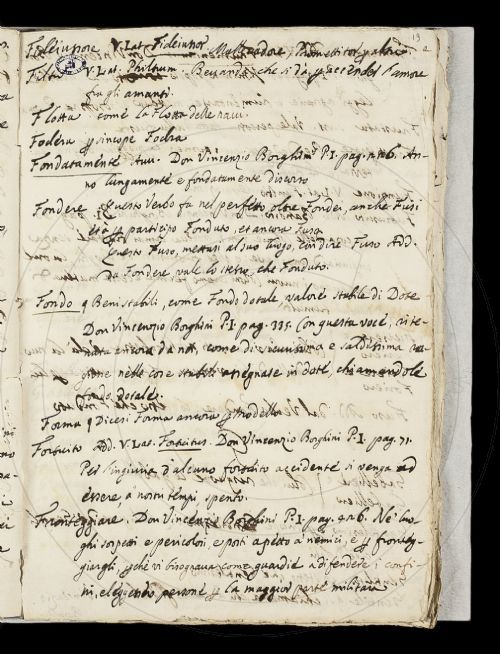 19
Fideiussore V. Lat. Fideiussor Mallevadore, Promettitor p altri
Filtro V. Lat. Philtrum. Bevanda, che si dà p accender l'amore
fra gli amanti.
Flotta come la Flotta delle navi.
Fodera p sincope Fodra
Fondatamente Avv. Don Vincenzio Borghini P. I. pag. 426. An-
no lungamente e fondatamente discorso
Fondere Questo Verbo fa nel perfetto oltre Fondei, anche Fusi
p participio Fonduto, et ancora Fuso
Questo Fuso, mettasi al suo luogo, con dire Fuso Add.
da Fondere, vale lo stesso, che Fonduto.
Fondo q Beni stabili, come Fondo dotale, valore stabile di Dote
Don Vincenzio Borghini P. I. pag. 335. Con questa voce, rite-
nuta ancora da noi, come di sicurissima e saldissima
nelle cose stabili assegnate in dote, chiamandole
fondo dotale.
Forma q Dicesi Forma ancora p Modello
Fortuito Add. V. Lat. Fortuitus. Don Vincenzio Borghini P. I. pag. 71.
Per ingiuria d'alcuno fortuito accidente si venga ad
essere, a nostri tempi spento.
Fronteggiare. Don Vincenzio Borghini P. I. pag. 426. Ne' luo-
ghi sospetti e pericolosi e posti apetto a' nemici, e p fronteg-
giargli, pche vi bisognava come guardie a difendere i confi-
ni, eleggendo persone p la maggior parte militare